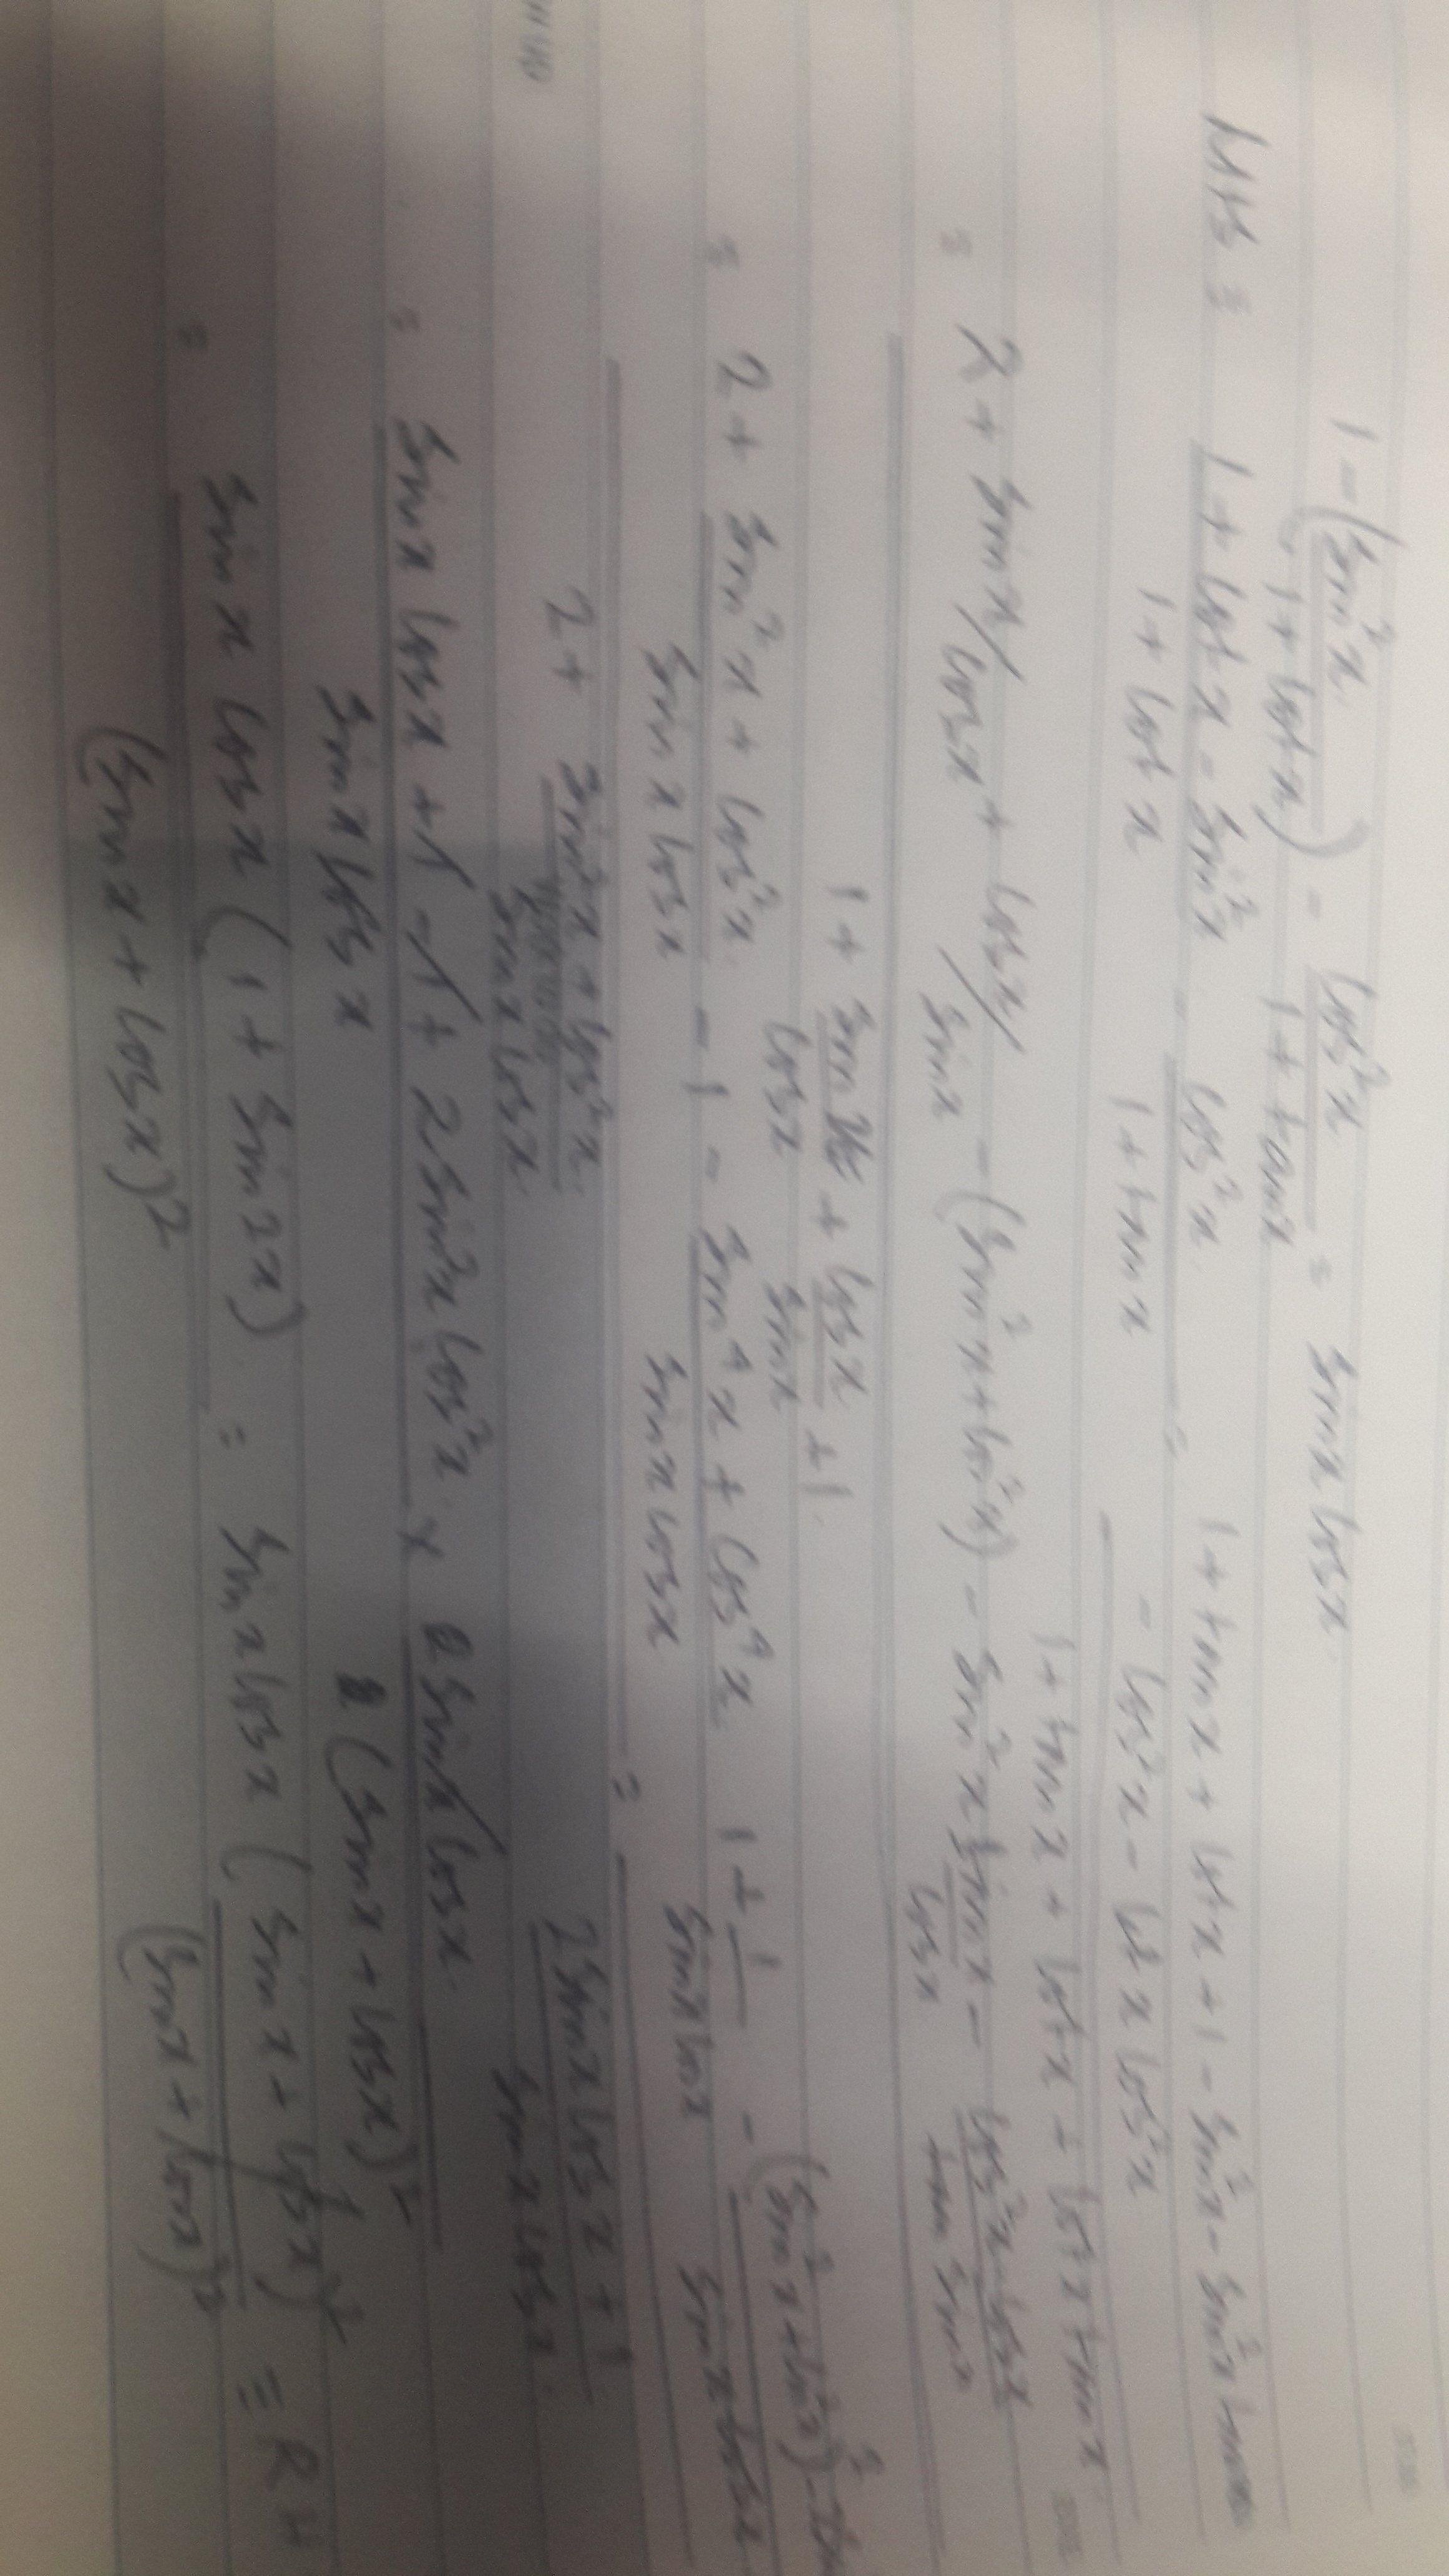 1 - (sin²x / 1 + cot x) - cos²x / 1 + tan x = sin x cos x
LHS = 1 + cot x - sin²x / 1 + cot x - cos²x / 1 + tan x = 1 + tan x + cot x + 1 - sin²x - sin²x tan x - cos²x - cot x cos²x / 1 + tan x + cot x + cot x tan x
= 2 + sin x / cos x + cos x / sin x - (sin²x + cos²x) - sin²x sin x / cos x - cos²x cos x / sin x
1 + sin x / cos x + cos x / sin x + 1
= 2 + sin²x + cos²x / sin x cos x - 1 - sin⁴x + cos⁴x / sin x cos x
1 + 1 / sin x cos x - (sin²x + cos²x)² / sin x cos x
2 + sin²x + cos²x / sin x cos x = 2 sin x cos x + 1 / sin x cos x
= sin x cos x + 1 - 1 + 2 sin²x cos²x / sin x cos x × sin x cos x / (sin x + cos x)²
= sin x cos x (1 + sin 2x) / (sin x + cos x)² = sin x cos x (sin x + cos x)² / (sin x + cos x)² ≡ RH